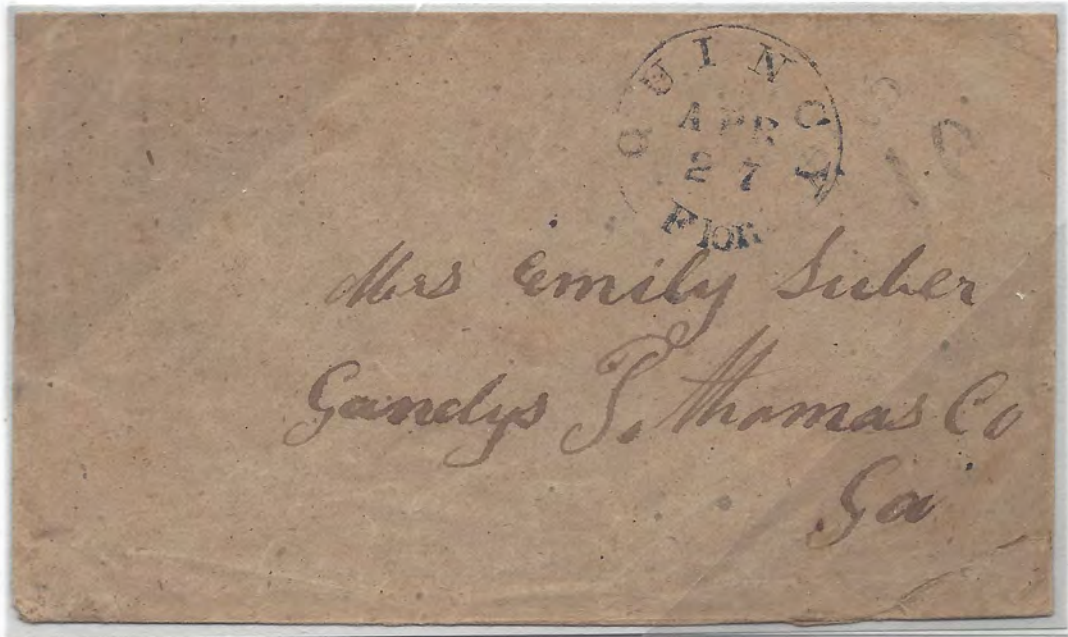 QUINCY
APR
27
Flor
10
Mrs Emily Suber
Gandys T. Thomas Co
Ga